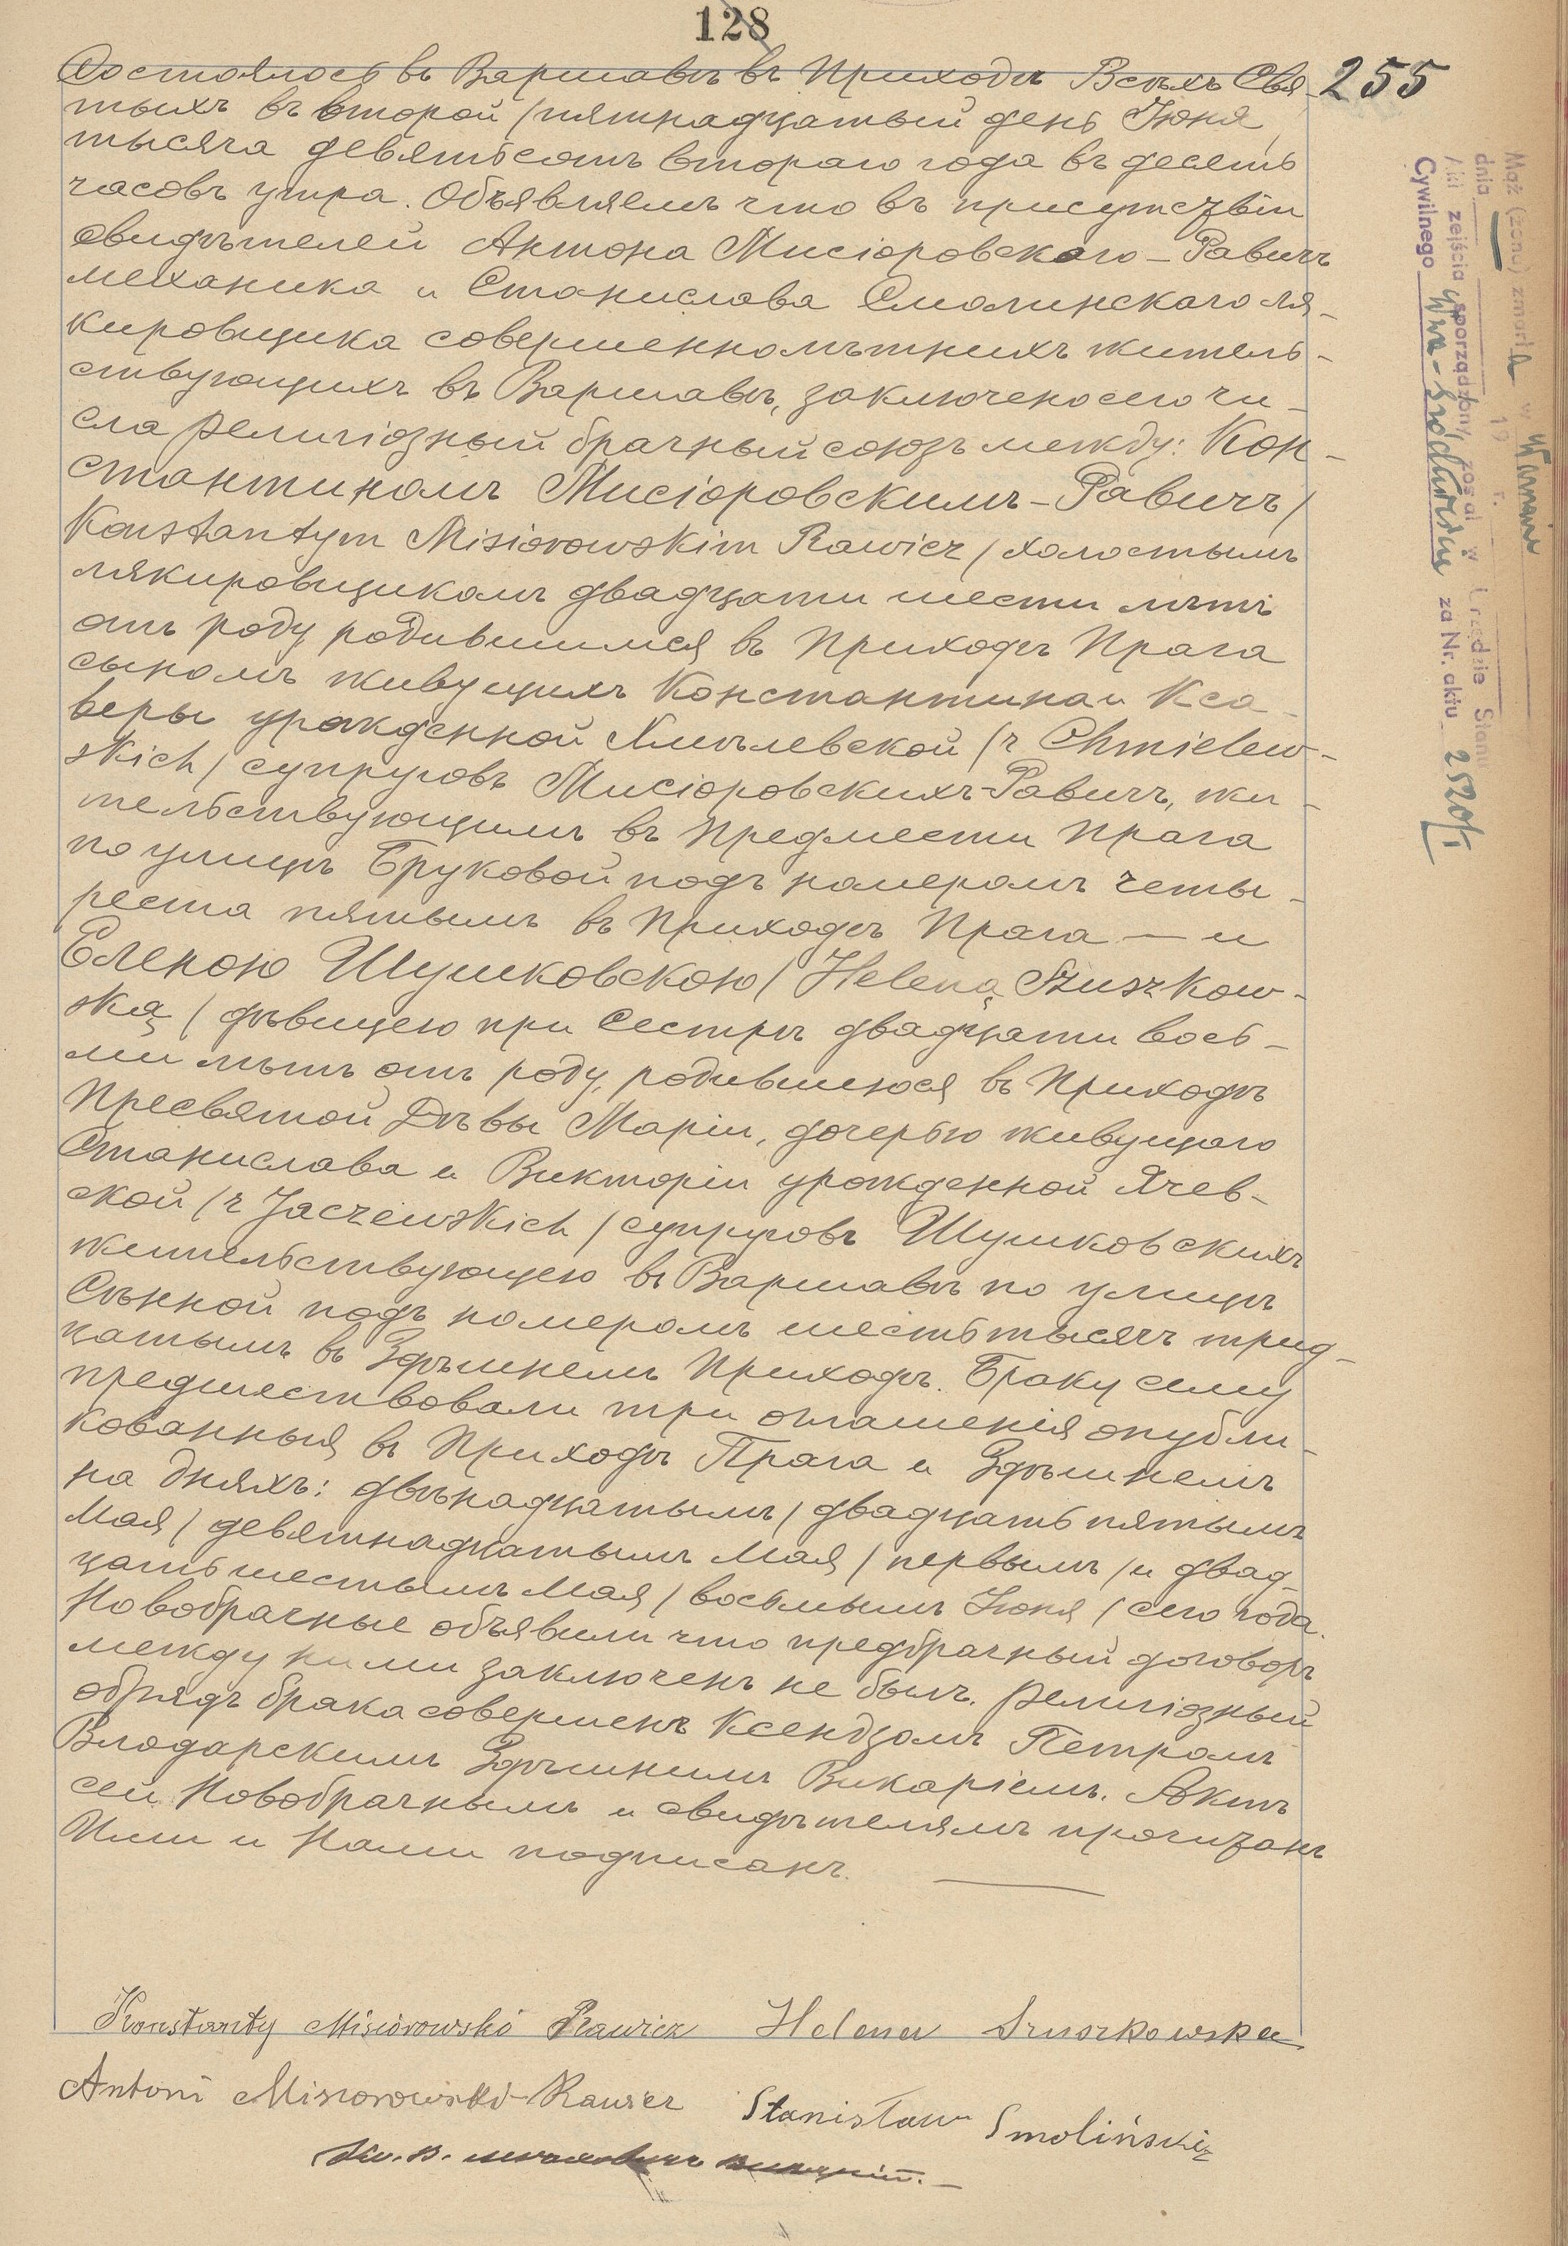 128
255
Состоялось въ Варшавѣ въ Приходѣ Всѣхъ Свя-
тыхъ въ второй / пятнадцатый день Іюня
тысяча девятьсотъ втораго года въ десять
часовъ утра. Объявляемъ что въ присутствіи
свидѣтелей Антона Мисіоровскаго - Равичъ
механика и Станислава Смолинскаго ля-
кировщика совершеннолѣтнихъ житель-
ствующихъ въ Варшавѣ, заключено сего чи-
сла религіозный брачный союзъ между: Кон-
стантиномъ Мисіоровскимъ - Равичъ /
Konstantym Misiorowskim Rawicz / холостымъ
лякировщикомъ двадцати шести лѣтъ
отъ роду, родившимся въ Приходѣ Прага
сыномъ живущихъ Константина и Кса-
веры урожденной Хмѣлевской / z Chmielew-
skich / супруговъ Мисіоровскихъ-Равичъ, жи-
тельствующимъ въ Предмести Прага
по улицѣ Бруковой подъ номеромъ четы-
реста пятымъ въ Приходѣ Прага — и
Еленою Шушковскою / Heleną Szuszkow-
ską / дѣвицею при сестрѣ двадцати вось-
ми лѣтъ отъ роду, родившеюся въ Приходѣ
Пресвятой Дѣвы Маріи, дочерью живущаго
Станислава и Викторіи урожденной Ячев-
ской / z Jaczewskich / супруговъ Шушковскихъ
жительствующею въ Варшавѣ по улицѣ
Сѣнной подъ номеромъ шесть тысячъ трид-
цатымъ въ Здѣшнемъ Приходѣ. Браку сему
предшествовали три оглашенія опубли-
кованныя въ Приходѣ Прага и Здѣшнемъ
на дняхъ: двѣнадцатымъ / двадцать пятымъ
Мая / девятнадцатымъ Мая / первымъ / и двад-
цать шестымъ Мая / восьмымъ Іюня / сего года.
Новобрачные объявили что предбрачный договоръ
между ними заключенъ не былъ. Религіозный
обрядъ брака совершенъ Ксендзомъ Петромъ
Влодарскимъ Здѣшнимъ Викаріемъ. Актъ
сей Новобрачнымъ и свидѣтелямъ прочитанъ
Ими и Нами подписанъ.
Konstanty Misiórowski Rawicz Helena Szuszkowska
Antoni Misiorowski-Rawicz Stanisław Smoliński
Mąż (żona) zmarła w
dnia 19 r.
Akt zejścia sporządzony został w Urzędzie Stanu
Cywilnego za Nr. aktu 2520/I